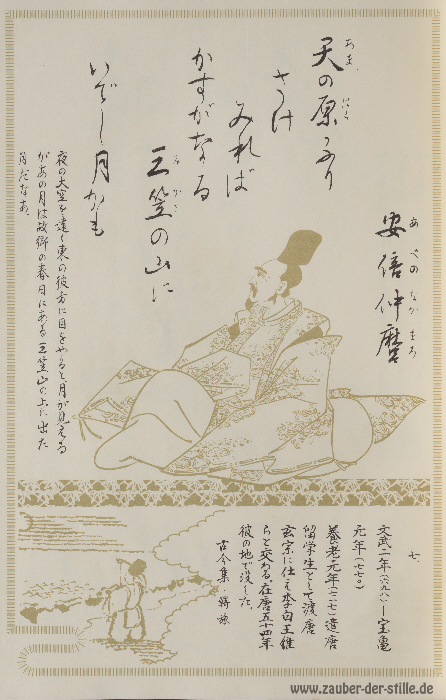 安倍仲麿
あべのなかまろ
天の原ふり
あま はら
さけ
みれば
かすがなる
三笠の山に
みかさ
いでし月かも
夜の大空を遠く東の彼方に目をやると月が見える
があの月は故郷の春日にある三笠山の上に出た
月だなあ。
七、
文武二年(六九八)ー宝亀
元年(七七〇)
養老元年(七一七)遣唐
留学生として渡唐
玄宗に仕え李白王維
らと交わる。在唐五十四年
彼の地で没した。
古今集・羇旅
www.zauber-der-stille.de